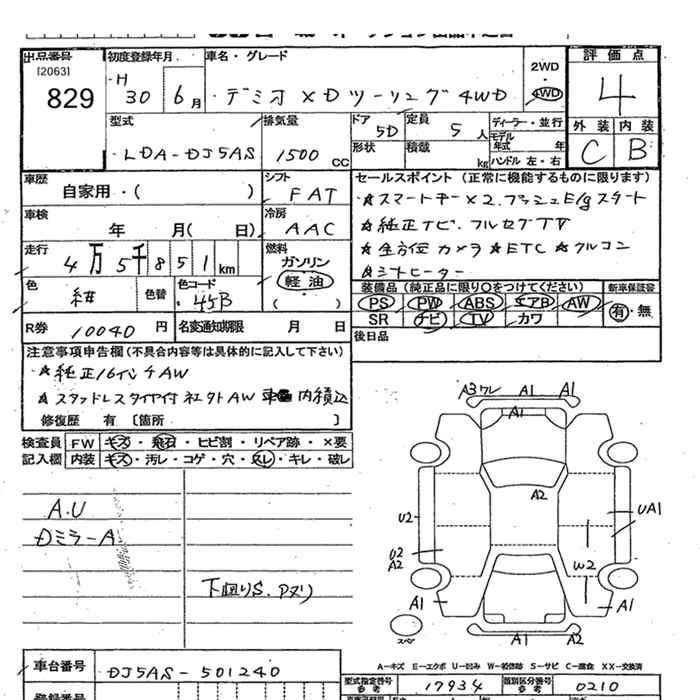 出品番号
[2063]
829
初度登録年月
H
30 6月
車名・グレード
デミオ XDツーリング 4WD
2WD
・
4WD
評価点
4
外装 内装
C B
型式
LDA-DJ5AS
排気量
1500 CC
ドア
5D
形状
定員
5人
積載
kg
ディーラー・並行
モデル
年式 年
ハンドル 左・右
車歴
自家用・( )
シフト
FAT
車検
年 月( 日)
冷房
AAC
走行
4万5千851km
燃料
ガソリン
軽油
( )
色
紺
色替
色コード
45B
R券
10040円
名変通知期限 月 日
セールスポイント (正常に機能するものに限ります)
★スマートキー×2. プッシュE/gスタート
★純正ナビ. フルセグTV
★全方位カメラ ★ETC ★クルコン
★シートヒーター
装備品 (純正品に限り○をつけてください) 新車保証書
PS PW ABS エアB AW
有・無
SR ナビ TV カワ
後日品
注意事項申告欄(不具合内容等は具体的に記入して下さい)
★純正16インチAW
★スタッドレスタイヤ付 社外AW 車内積込
修復歴 有 [箇所 ]
検査員 FW キズ・飛石・ヒビ割・リペア跡・×要
記入欄 内装 キズ・汚レ・コゲ・穴・スレ・キレ・破レ
A.U
DミラーA
下回りS. Pヌリ
A3ワレ A1 A1
A1
A2
U2
UA1
U2
A2
W2
A1 A1
スペア
A1 A2
A-キズ E-エクボ U-凹み W-補修跡 S-サビ C-腐食 XX-交換済
車台番号
DJ5AS-501240
型式指定番号
参考
17934
類別区分番号
参考
0210
登録番号